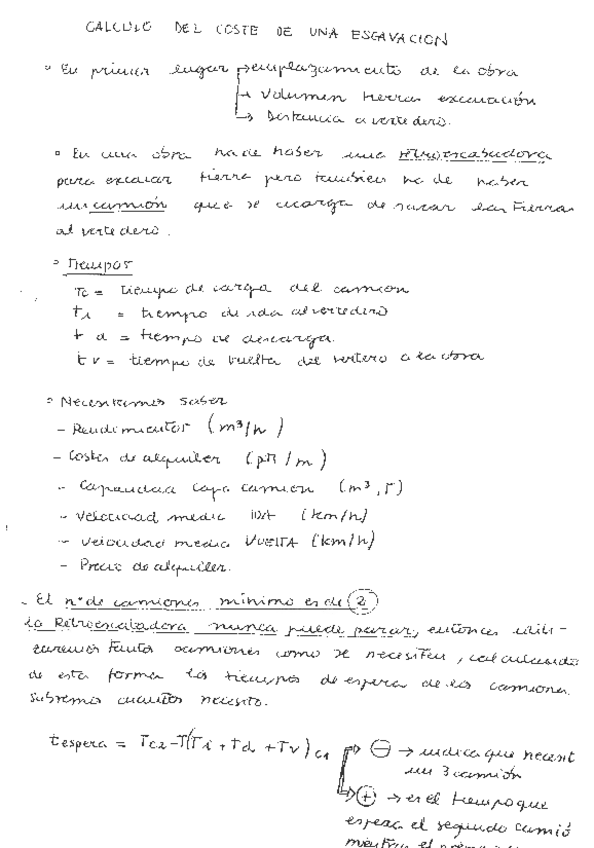 CALCULO DEL COSTE DE UNA ESCAVACION
En primer lugar → emplazamiento de la obra
→ Volumen tierras excavación
→ Distancia a vertedero.
En una obra ha de haber una retroescabadora
para excavar tierra pero tambien ha de haber
un camión que se encarga de sacar las tierras
al vertedero.
Tiempos
Tc = tiempo de carga del camion
ti = tiempo de ida al vertedero
td = tiempo de descarga.
tv = tiempo de vuelta del vertero a la obra
Necesitamos saber
- Rendimientos (m³/h)
- Costes de alquiler (pts/m)
- Capacidad caja camion (m³, T)
- Velocidad media IDA (km/h)
- Velocidad media VUELTA (km/h)
- Precio de alquiler.
- El nº de camiones mínimo es de 2
la Retroescabadora nunca puede parar, entonces utili-
zaremos tantos camiones como se necesiten, calculando
de esta forma los tiempos de espera de los camiones
sabremos cuantos necesito.
tespera = Tc2 - T(Ti + Td + Tv)c1 → ⊖ → indica que necesit
un 3 camión
→ ⊕ → es el tiempo que
espera el segundo camió
mientras el